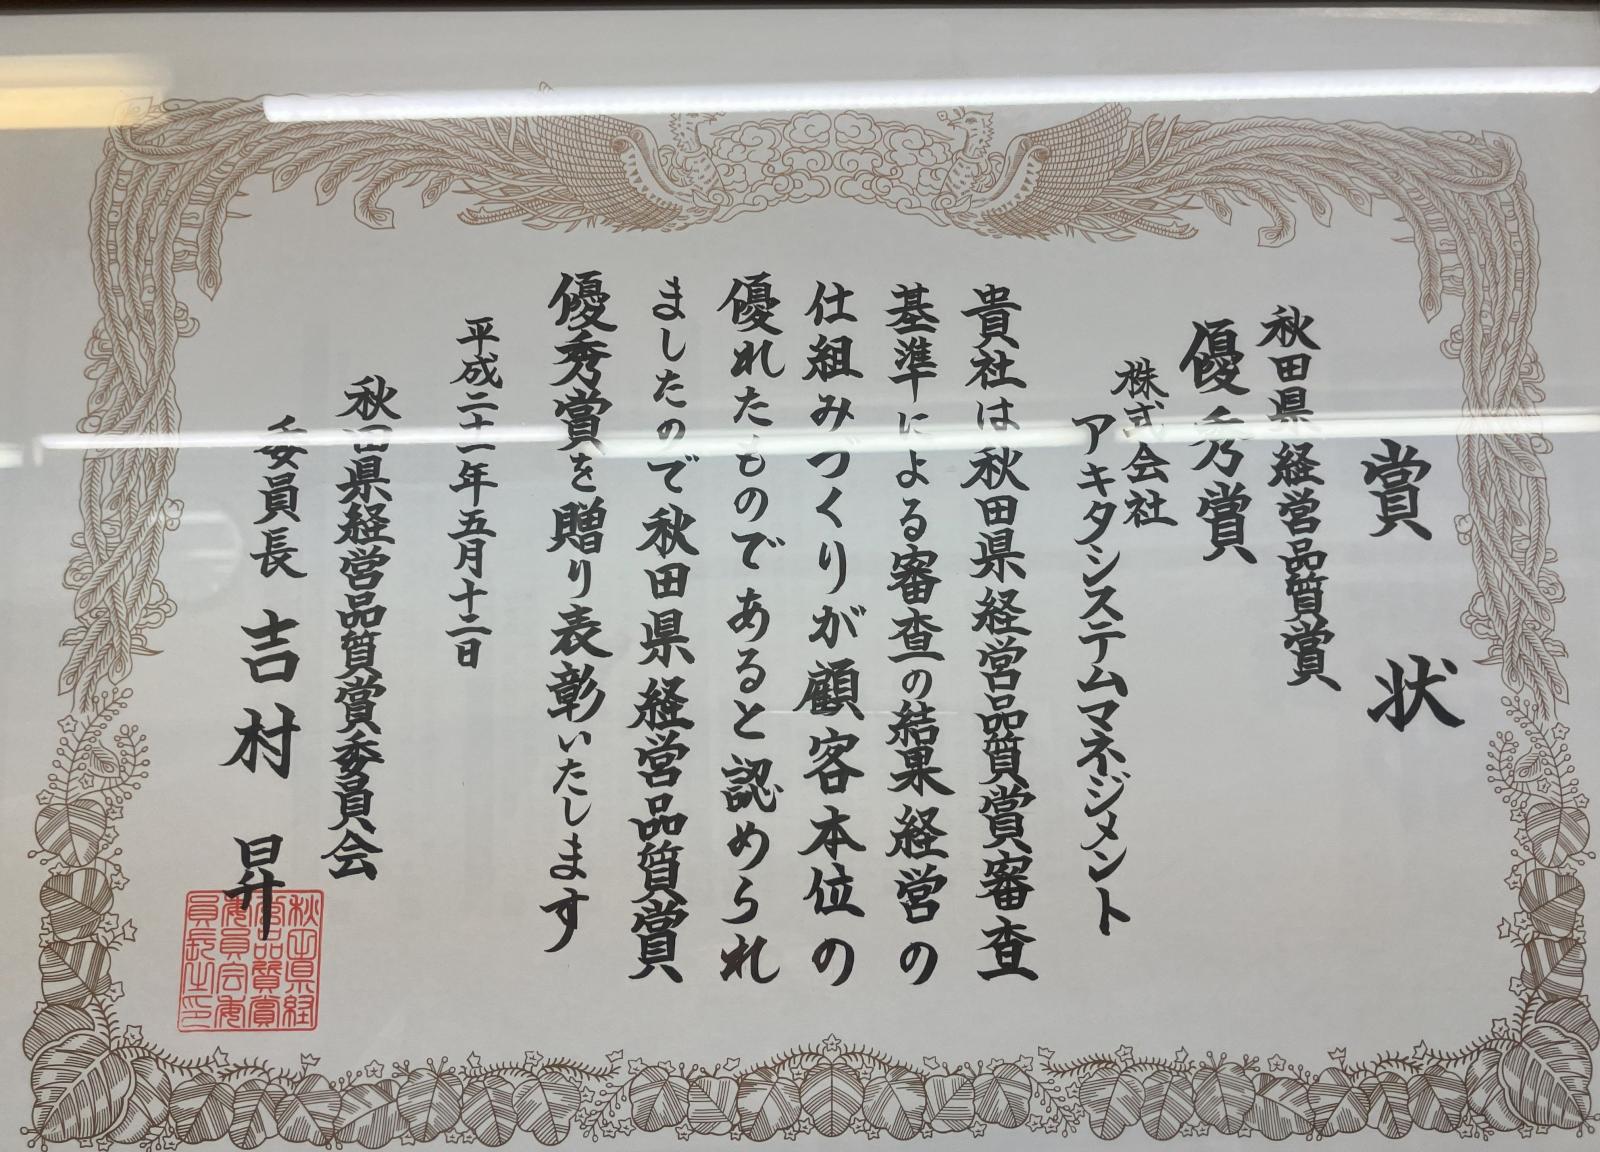 賞状
秋田県経営品質賞
優秀賞
株式会社
アキタシステムマネジメント
貴社は秋田県経営品質賞審査
基準による審査の結果経営の
仕組みづくりが顧客本位の
優れたものであると認められ
ましたので秋田県経営品質賞
優秀賞を贈り表彰いたします
平成二十一年五月十二日
秋田県経営品質賞委員会
委員長 吉村 昇
秋田県経
営品質賞
委員会委
員長之印